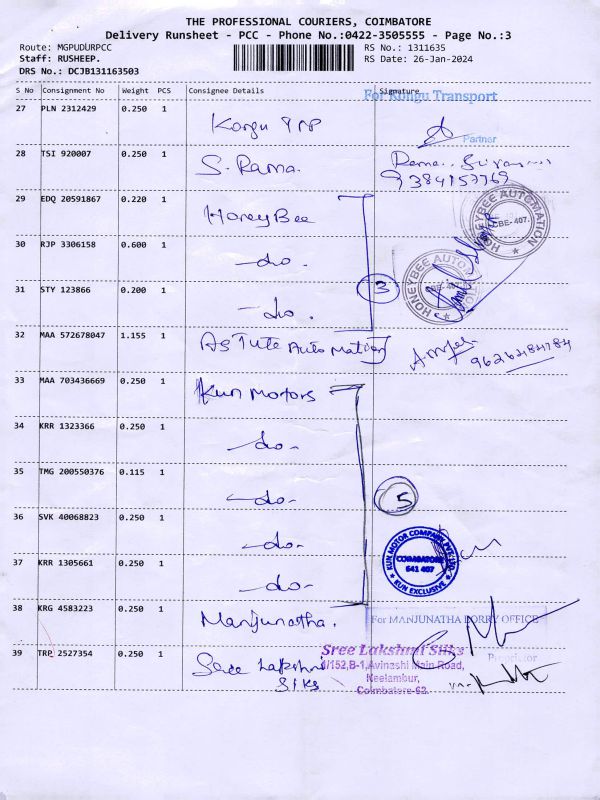 THE PROFESSIONAL COURIERS, COIMBATORE
Delivery Runsheet - PCC - Phone No.:0422-3505555 - Page No.:3
Route: MGPUDURPCC RS No.: 1311635
Staff: RUSHEEP. RS Date: 26-Jan-2024
DRS No.: DCJB131163503
S No Consignment No Weight PCS Consignee Details Signature
For Kongu Transport
27 PLN 2312429 0.250 1 Kongu TPP
Partner
28 TSI 920007 0.250 1 S. Rama.
29 EDQ 20591867 0.220 1 HoneyBee
HONEYBEE AUTOMATION CBE-407.
30 RJP 3306158 0.600 1 -do.
HONEYBEE AUTOMATION
31 STY 123866 0.200 1 -do. 3
32 MAA 572678047 1.155 1 AsTute Automation
33 MAA 703436669 0.250 1 Kun Motors
34 KRR 1323366 0.250 1 -do-
35 TMG 200550376 0.115 1 -do- 5
36 SVK 40068823 0.250 1 -do-
KUN MOTOR COMPANY PVT. LTD. COIMBATORE 641 407 KUN EXCLUSIVE
37 KRR 1305661 0.250 1 -do-
38 KRG 4583223 0.250 1 Manjunatha.
For MANJUNATHA LORRY OFFICE
Proprietor
39 TRC 2527354 0.250 1 Sree Lakshmi Silks
Sree Lakshmi Silks
1/152,B-1,Avinashi Main Road,
Neelambur,
Coimbatore-62.